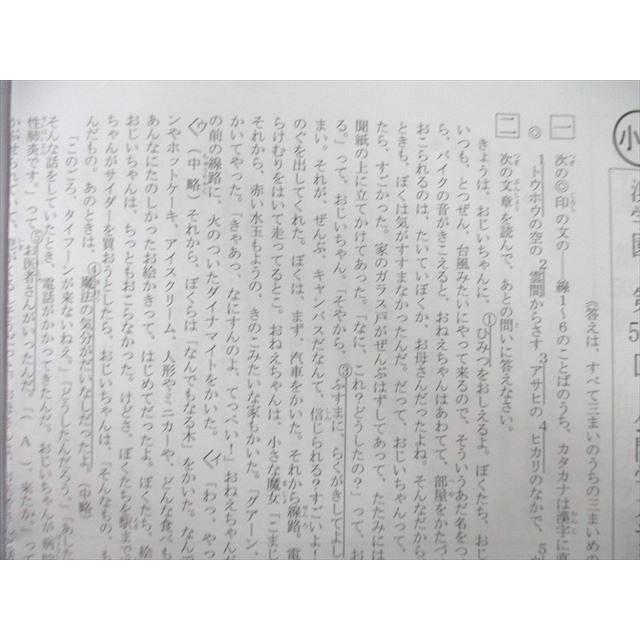 小
第5回
《答えは、すべて三まいのうちの三まいめの
一 次の◎印の文の――線1～6のことばのうち、カタカナは漢字に直
◎ 1トウホウの空の2雲間からさす3アサヒの4ヒカリのなかで、5
二 次の文章を読んで、あとの問いに答えなさい。
きょうは、おじいちゃんに、①ひみつをおしえるよ。ぼくたち、おじ
いつも、とつぜん、台風みたいにやって来るので、そういうあだ名をつ
ら、バイクの音がきこえると、おねえちゃんはあわてて、部屋をかたづ
おこられるのは、たいていぼくか、お母さんだったよね。そんなだから
ときも、ぼくは気がすすまなかったんだ。だって、おじいちゃんって、
たら、すごかった。家のガラス戸がぜんぶはずしてあって、たたみには
聞紙の上に立てかけてあった。「なに、これ？どうしたの？」って、お
る。」って、おじいちゃん。「そやから、③ふすまに、らくがきしてよし
まい。それが、ぜんぶ、キャンバスだなんて、信じられる？すごいよ！
のぐを出してくれた。ぼくは、まず、汽車をかいた。それから線路。電
らけむりをはいて走ってるとこ。おねえちゃんは、小さな魔女「こまじ
それから、赤い水玉もようの、きのこみたいな家もかいた。「グアーン、
かいてやった。「きゃあっ、なにすんのよ、てっぺい！」おねえちゃんが
の前の線路に、火のついたダイナマイトをかいた。〈イ「わっ、やっ
〈ウ（中略）それから、ぼくらは「なんでもなる木」をかいた。なんで
ンやホットケーキ、アイスクリーム、人形やミニカーや、どんな食べも
あんなにたのしかったお絵かきって、はじめてだったよ。ぼくたち、絵
おじいちゃんは、ちっともおこらなかった。けどさ、ぼくたちを駅まで
ちゃんがサイダーを買おうとしたら、おじいちゃんは、「そんなもの、も
んだもの。あのときは、④魔法の気分がだいなしだったよ。（中略）
「このごろ、タイフーンが来ないねえ。」「どうしたんだろう。」「あした
そんな話をしていたとき、電話がかかってきたんだ。おじいちゃんが病院
性肺炎です。」って⑤お医者さんがいったんだ。「（ A ）、来たか。」って